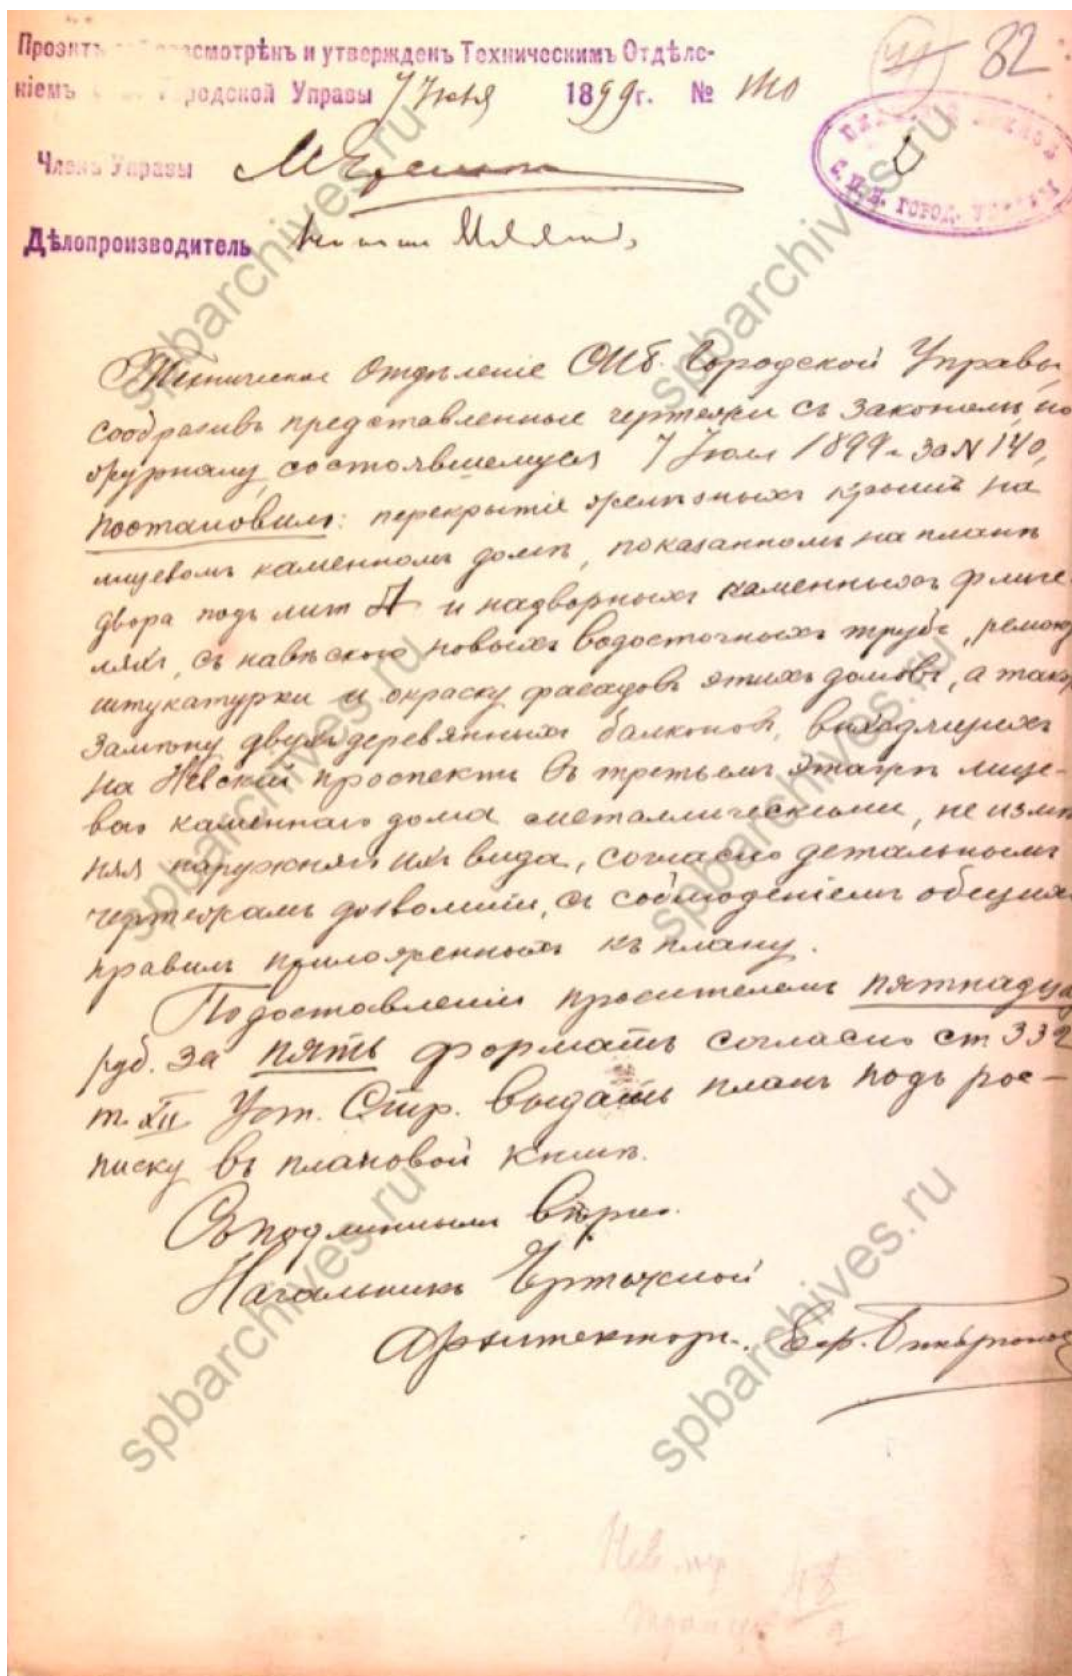 Проэктъ разсмотрѣнъ и утвержденъ Техническимъ Отдѣле-
ніемъ Городской Управы 7 Іюля 1899 г. № 140
82
Членъ Управы
Дѣлопроизводитель
С. П. Б. ГОРОД. УПРАВЫ
Техническое Отдѣленіе СПб. Городской Управы,
сообразивъ представленные чертежи съ законами, по
журналу, состоявшемуся 7 Іюля 1899 г. за № 140,
постановило: перекрытіе желѣзныхъ крышъ на
лицевомъ каменномъ домѣ, показанномъ на планѣ
двора подъ лит А и надворныхъ каменныхъ флиге-
ляхъ, съ навѣскою новыхъ водосточныхъ трубъ, ремон
штукатурки и окраску фасадовъ этихъ домовъ, а такж
замѣну двухъ деревянныхъ балконовъ, выходящихъ
на Невскій проспектъ въ третьемъ этажѣ лице-
ваго каменнаго дома металлическими, не измѣ
няя наружняго ихъ вида, согласно детальнымъ
чертежамъ дозволить, съ соблюденіемъ общихъ
правилъ приложенныхъ къ плану.
По доставленіи просителемъ пятнадца
руб. за пять форматъ согласно ст 332
т. XII Уст. Стр. выдать планъ подъ рос-
писку въ плановой книгѣ.
Съ подлиннымъ вѣрно.
Начальникъ Чертежной
Архитекторъ
Нев. пр
48
spbarchives.ru
spbarchives.ru
spbarchives.ru
spbarchives.ru
spbarchives.ru
spbarchives.ru